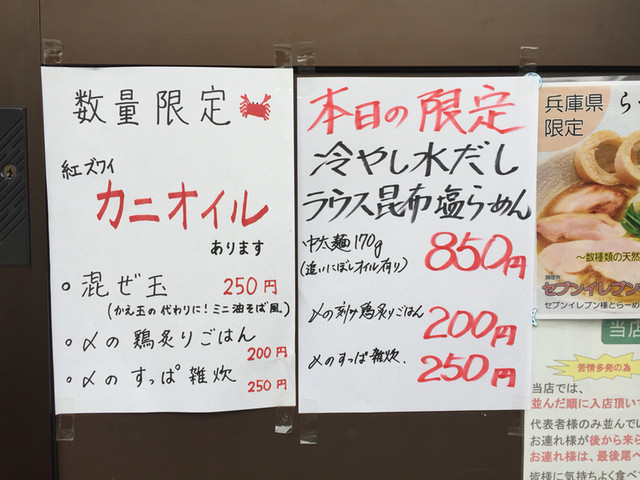 数量限定
紅ズワイ
カニオイル
あります
。混ぜ玉 250円
(かえ玉の代わりに!ミニ油そば風)
。〆の鶏炙りごはん
200円
。〆のすっぱ雑炊 250円
本日の限定
冷やし水だし
ラウス昆布塩らーめん
中太麺170g 850円
(追いにぼしオイル有り)
〆の刻み鶏炙りごはん
200円
〆のすっぱ雑炊. 250円
兵庫県
限定
〜数種類の天然
セブンイレブン
セブンイレブン様とらーめ
当店
苦情多発の為
当店では、
並んだ順に入店頂いて
代表者様のみ並んで
お連れ様が後から来
お連れ様は、最後尾へ
皆様に気持ちよく食べて